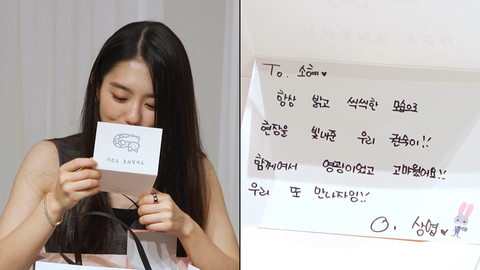 THANK YOU
To. 소혜♥
항상 밝고 씩씩한 모습으로
현장을 빛내준 우리 권숙이!!
함께여서 영광이었고 고마웠어요!!
우리 또 만나자잉!!
O. 상엽♥